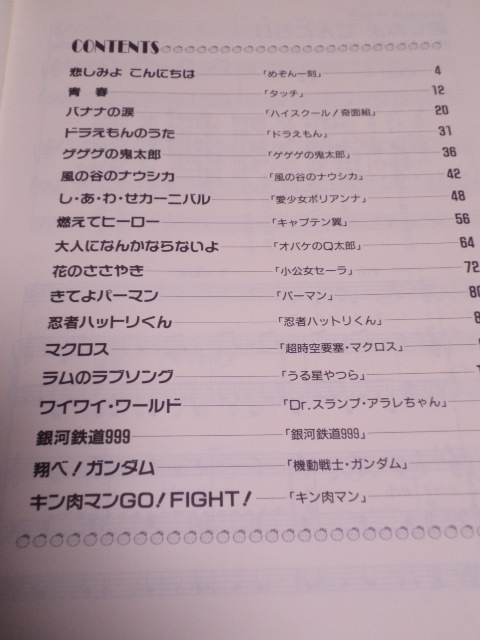 CONTENTS
悲しみよ こんにちは 「めぞん一刻」 4
青 春 「タッチ」 12
バナナの涙 「ハイスクール!奇面組」 20
ドラえもんのうた 「ドラえもん」 31
ゲゲゲの鬼太郎 「ゲゲゲの鬼太郎」 36
風の谷のナウシカ 「風の谷のナウシカ」 42
し・あ・わ・せカーニバル 「愛少女ポリアンナ」 48
燃えてヒーロー 「キャプテン翼」 56
大人になんかならないよ 「オバケのQ太郎」 64
花のささやき 「小公女セーラ」 72
きてよパーマン 「パーマン」
忍者ハットリくん 「忍者ハットリくん」
マクロス 「超時空要塞・マクロス」
ラムのラブソング 「うる星やつら」
ワイワイ・ワールド 「Dr.スランプ・アラレちゃん」
銀河鉄道999 「銀河鉄道999」
翔べ!ガンダム 「機動戦士・ガンダム」
キン肉マンGO!FIGHT! 「キン肉マン」